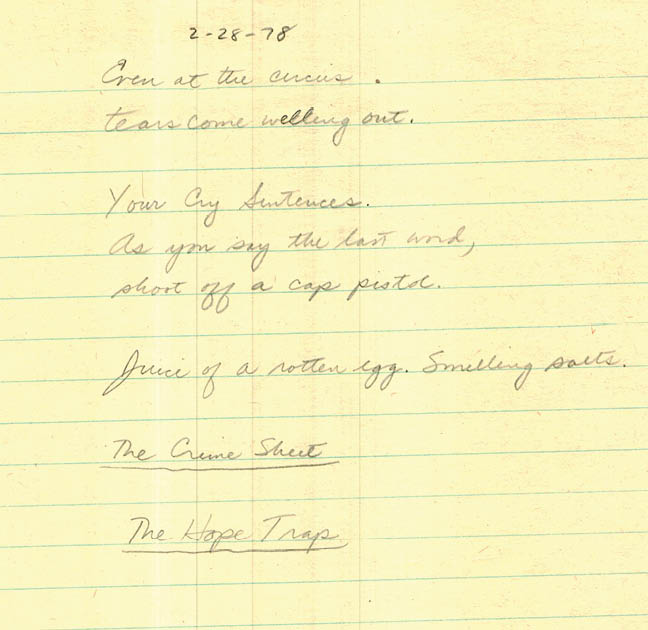 2-28-78
Even at the circus.
tears come welling out.
Your Cry Sentences.
As you say the last word,
shoot off a cap pistol.
Juice of a rotten egg. Smelling salts.
The Crime Sheet
The Hope Trap